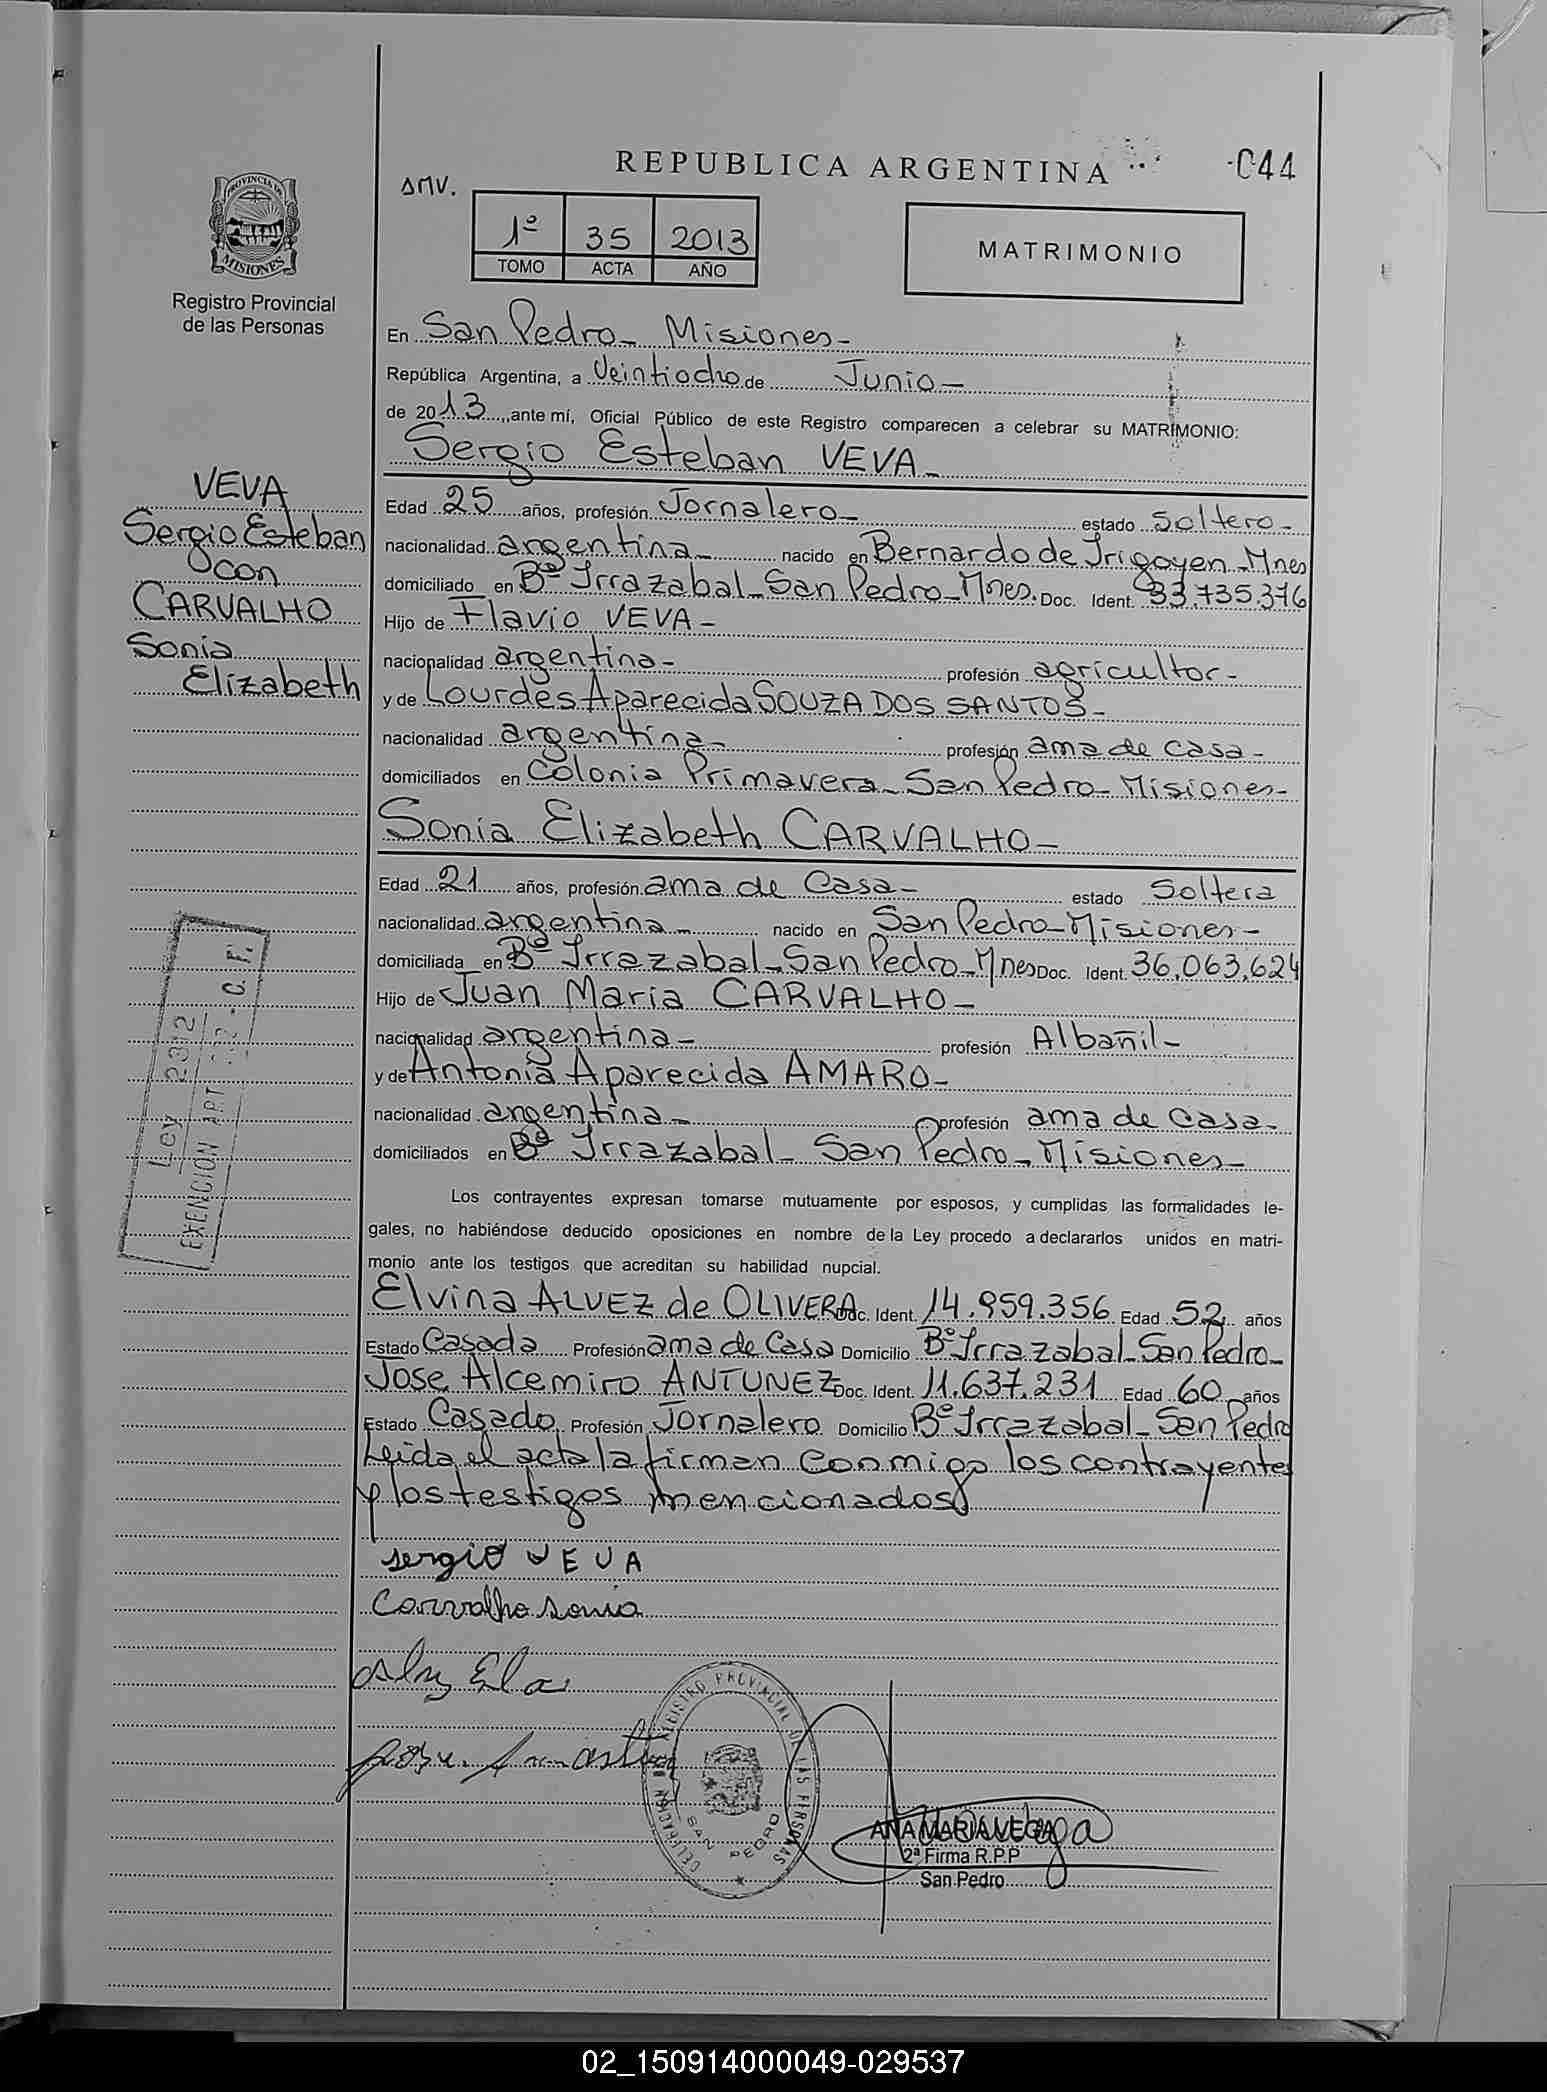 REPUBLICA ARGENTINA
044
AMV.
PROVINCIA DE
MISIONES
Registro Provincial
de las Personas
1º 35 2013
TOMO ACTA AÑO
MATRIMONIO
En San Pedro - Misiones -
República Argentina, a Veintiocho de Junio -
de 2013, ante mí, Oficial Público de este Registro comparecen a celebrar su MATRIMONIO:
Sergio Esteban VEVA -
VEVA
Sergio Esteban
con
CARVALHO
Sonia
Elizabeth
Edad 25 años, profesión Jornalero - estado Soltero -
nacionalidad argentina - nacido en Bernardo de Irigoyen - Mnes
domiciliado en Bº Irrazabal - San Pedro - Mnes. Doc. Ident. 33.735.376
Hijo de Flavio VEVA -
nacionalidad argentina - profesión agricultor -
y de Lourdes Aparecida SOUZA DOS SANTOS -
nacionalidad argentina - profesión ama de casa -
domiciliados en Colonia Primavera - San Pedro - Misiones -
Sonia Elizabeth CARVALHO -
Edad 21 años, profesión ama de Casa - estado Soltera
nacionalidad argentina - nacido en San Pedro - Misiones -
domiciliada en Bº Irrazabal - San Pedro - Mnes Doc. Ident. 36.063.624
Hijo de Juan Maria CARVALHO -
nacionalidad argentina - profesión Albañil -
y de Antonia Aparecida AMARO -
nacionalidad argentina - profesión ama de Casa -
domiciliados en Bº Irrazabal - San Pedro - Misiones -
Ley 2312
EXENCION ART C. F.
Los contrayentes expresan tomarse mutuamente por esposos, y cumplidas las formalidades le-
gales, no habiéndose deducido oposiciones en nombre de la Ley procedo a declararlos unidos en matri-
monio ante los testigos que acreditan su habilidad nupcial.
Elvina ALVEZ de OLIVERA Doc. Ident. 14.959.356 Edad 52 años
Estado Casada Profesión ama de Casa Domicilio Bº Irrazabal - San Pedro -
Jose Alcemiro ANTUNEZ Doc. Ident. 11.637.231 Edad 60 años
Estado Casado Profesión Jornalero Domicilio Bº Irrazabal - San Pedro
Leida el acta la firman conmigo los contrayentes
y los testigos mencionados
sergio VEVA
Carvalho sonia
REGISTRO PROVINCIAL DE LAS PERSONAS
DELEGACION
SAN PEDRO
ANA MARIA VEGA
2ª Firma R.P.P
San Pedro
02_150914000049-029537